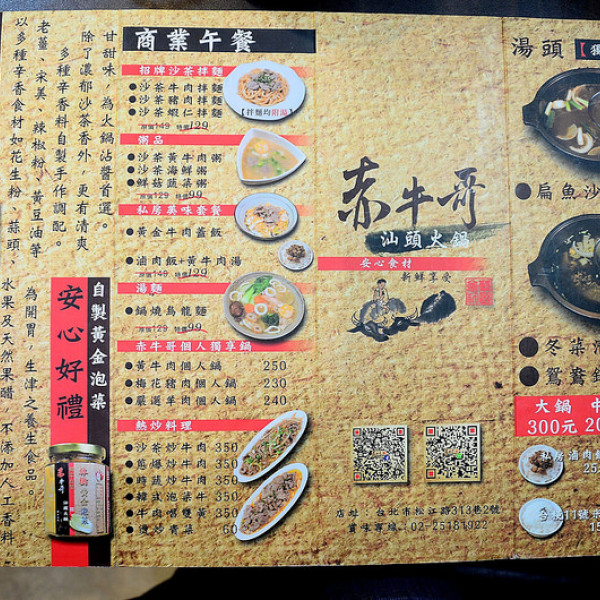 甘甜味，為火鍋沾醬首選。
除了濃郁沙茶香外，更有清爽
多種辛香料自製手作調配。
老薑、宋美、辣椒粉、黃豆油等
以多種辛香食材如花生粉、蒜頭、
水果及天然果醋，不添加人工香料
為開胃，生津之養生食品。
自製黃金泡菜
安心好禮
商業午餐
招牌沙茶拌麵
●沙茶牛肉拌麵
●沙茶豬肉拌麵
●沙茶蝦仁拌麵
原價149 特價129
【拌麵均附湯】
粥品
●沙茶黃牛肉粥
●沙茶海鮮粥
●鮮菇蔬菜粥
原價129 特價99
私房美味套餐
●黃金牛肉蓋飯
●滷肉飯+黃牛肉湯
原價149 特價129
湯麵
●鍋燒烏龍麵
原價129 特價99
赤牛哥個人獨享鍋
●黃牛肉個人鍋 250
●梅花豬肉個人鍋 230
●嚴選羊肉個人鍋 240
熱炒料理
●沙茶炒牛肉 350
●蔥爆炒牛肉 350
●時蔬炒牛肉 350
●韓式泡菜牛 350
●牛肉嘓雙黃 350
●清炒青菜 60
赤牛哥
汕頭火鍋
安心食材
新鮮享受
店址：台北市松江路313巷2號
賞味專線：02-25181922
湯頭【獨
●扁魚沙
●冬菜
●鴛鴦鍋
大鍋 中
300元 20
私房滷肉飯
25
15